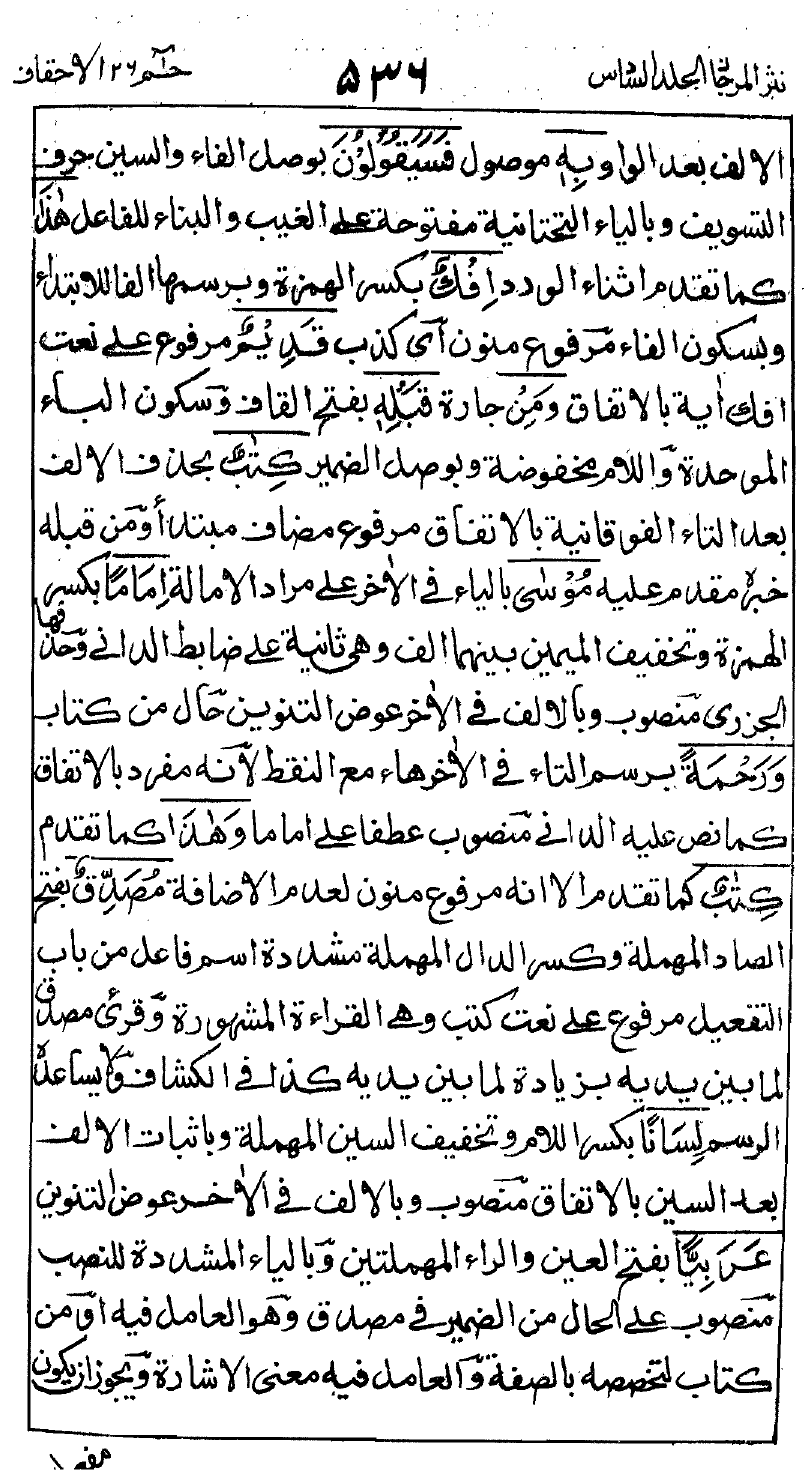 نثر المرجان المجلد السادس ٥٣٦ حٰم ٢٦ الاحقاف
الالف بعد الواو بِهٖ موصول فَسَيَقُوْلُوْنَ بوصل الفاء والسين حرف
التسويف وبالياء التحتانية مفتوحة على الغيب والبناء للفاعل هٰذَا
كما تقدم اثناء الورد اِفْكٌ بكسر الهمزة وبرسمها الفا للابتداء
وبسكون الفاء مرفوع منون اى كذب قَدِيْمٌ مرفوع على نعت
افك اٰية بالاتفاق وَمِنْ جارة قَبْلِهٖ بفتح القاف وسكون الباء
الموحدة واللام مخفوضة وبوصل الضمير كِتٰبُ بحذف الالف
بعد التاء الفوقانية بالاتفاق مرفوع مضاف مبتدأ ومن قبله
خبره مقدم عليه مُوْسٰى بالياء فى الاٰخر على مراد الامالة اِمَامًا بكسر
الهمزة وتخفيف الميمين بينهما الف وهى ثانية على ضابط الدانى وحذفها
الجزرى منصوب وبالالف فى الاٰخر عوض التنوين حال من كتاب
وَرَحْمَةً برسم التاء فى الاٰخر هاء مع النقط لأنه مفرد بالاتفاق
كما نص عليه الدانى منصوب عطفا على اماما وَهٰذَا كما تقدم
كِتٰبٌ كما تقدم الا انه مرفوع منون لعدم الاضافة مُصَدِّقٌ بفتح
الصاد المهملة وكسر الدال المهملة مشددة اسم فاعل من باب
التفعيل مرفوع على نعت كتب وهى القراءة المشهورة وقرئ مصدق
لما بين يديه بزيادة لما بين يديه كذا فى الكشاف ولا يساعده
الرسم لِسَانًا بكسر اللام وتخفيف السين المهملة وباثبات الالف
بعد السين بالاتفاق منصوب وبالالف فى الاٰخر عوض التنوين
عَرَبِيًّا بفتح العين والراء المهملتين وبالياء المشددة للنصب
منصوب على الحال من الضمير فى مصدق وهو العامل فيه او من
كتاب لتخصصه بالصفة والعامل فيه معنى الاشارة ويجوز ان يكون